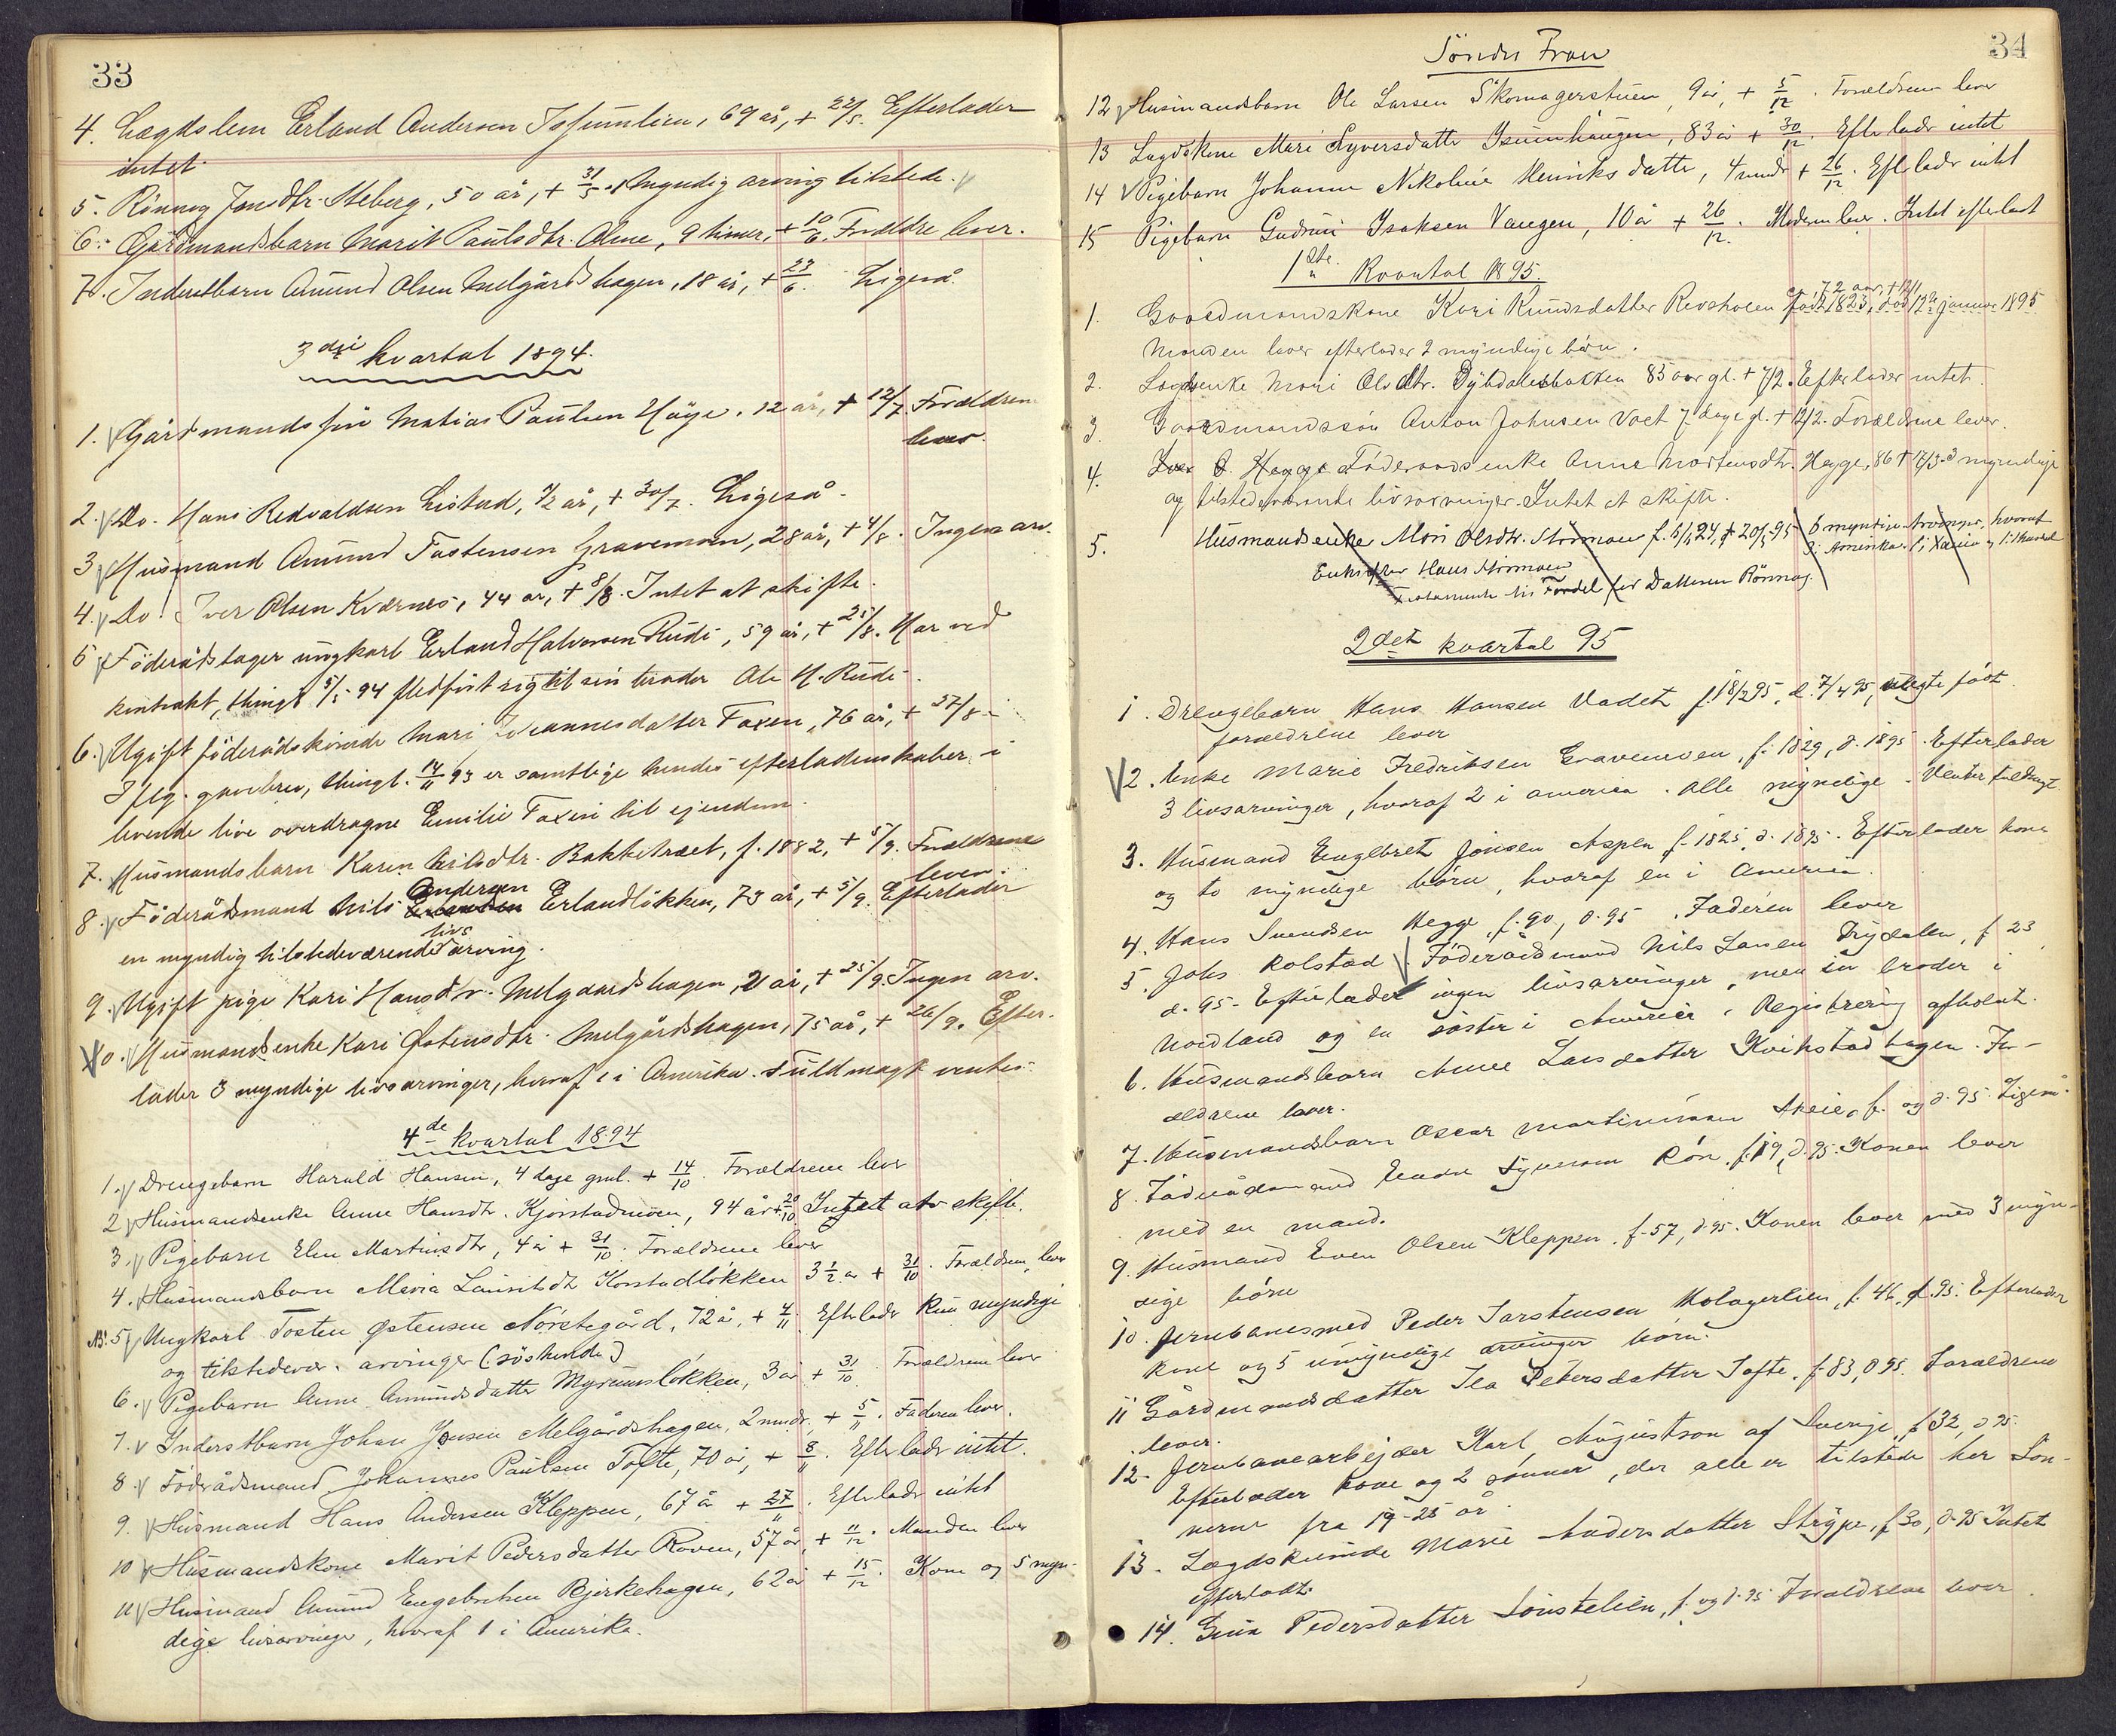 33
4. Lægdslem Erland Andersen Isumlien, 69 år, + 22/5. Efterlader
intet.
5. Rönnog Jonsdtr. Steberg, 50 år, + 31/5. Myndig arving tilstede.
6. Gårdmandsbarn Marit Paulsdtr. Alme, 9 timer, + 10/6. Forældre lever.
7. Inderstbarn Amund Olsen Melgårdshagen, 18 år, + 23/6. Ligeså.
3die kvartal 1894.
1. Gårdmandssön Matias Paulsen Höye, 12 år, + 12/7. Forældrene
lever.
2. Do. Hans Redvaldsen Listad, 1/2 år, + 30/7. Ligeså.
3. Husmand Amund Tostensen Gravemoen, 28 år, + 4/8. Ingen arv.
4. Do. Iver Olsen Kværnes, 44 år, + 8/8. Intet at skifte.
5. Föderådstager ungkarl Erland Halvorsen Rudi, 59 år, + 25/8. Har ved
kontrakt, thingl. 5/5 94 fledfört sig til sin broder Ole H. Rudi.
6. Ugift föderådskvinde Mari Johannesdatter Foxen, 76 år, + 27/8.
Iflg. gavebrev, thingl. 14/11 93 er samtlige hendes efterladenskaber i
levende live overdragne Emilie Foxen til ejendom.
7. Husmandsbarn Karen Nilsdtr. Bakketræet, f. 1882, + 5/9. Forældrene
lever.
8. Föderådsmand Nils Andersen Erlandlökken, 73 år, + 5/9. Efterlader
en myndig tilstedeværende livsarving.
9. Ugift pige Kari Hansdtr. Melgaardshagen, 21 år, + 25/9. Ingen arv.
10. Husmandsenke Kari Østensdtr. Melgårdshagen, 75 år, + 26/9. Efter-
lader 3 myndige livsarvinger, hvoraf 1 i Amerika. Fuldmagt ventes.
4de kvartal 1894
1. Drengebarn Harald Hansen, 4 dage gml. + 14/10. Forældrene lever
2. Husmandsenke Anne Hansdtr. Kjorstadmoen, 94 år + 20/10 Intet at skifte.
3. Pigebarn Elen Martinsdtr, 4 år + 31/10. Forældrene lever
4. Husmandsbarn Maria Lauritsdtr Korstadlökken 3 1/2 år + 31/10. Forældrene lever
NB. 5. Ungkarl Tosten Østensen Nörstegård, 72 å, + 4/11. Efterlader kun myndige
og tilstedevær. arvinger (söskende)
6. Pigebarn Anne Amundsdatter Mysumslökken, 3 år + 31/10. Forældrene lever
7. Inderstbarn Johan Jensen Melgårdshagen, 2 mndr. + 5/11. Faderen lever.
8. Föderådsmand Johannes Paulsen Tofte, 70 år, + 8/11. Efterlader intet.
9. Husmand Hans Andersen Kleppen, 67 å + 27/11. Efterlader intet
10 Husmandskone Marit Pedersdatter Roven, 57 år, + 11/12. Manden lever
11 Husmand Amund Engebretsen Bjerkehagen, 62 år + 15/12. Kone og 5 myn-
dige livsarvinger, hvoraf 1 i Amerika.
34
Söndre Fron
12 Husmandsbarn Ole Larsen Skomagerstuen, 9 år, + 5/12. Forældrene lever
13 Lægdskone Mari Syversdatter Isumhaugen, 83 år + 30/12. Efterlader intet
14 Pigebarn Johanne Nikoline Henriksdatter, 4 mndr + 26/12. Efterlader intet
15 Pigebarn Gudrun Isaksen Vangen, 10 år + 26/12. Moderen lever. Intet efterladt
1ste Kvartal 1895.
72 aar, + 12/1
1. Gaardmandskone Kari Knudsdatter Revsholen født 1823, död 12te januar 1895
Manden lever efterlader 2 myndige börn.
2. Lægdsenke Mari Olsdtr. Dybdalsbakken 85 aar gl. + 7/2. Efterlader intet.
3. Gaardmandssön Anton Johnsen Voet 7 dage gl. + 12/2. Forældrene lever.
4. Iver O. Hegge Föderaadsenke Anne Mortensdtr. Hegge, 86 + 17/3. 3 myndige
og tilstedeværende livsarvinger. Intet at skifte.
5. Husmandsenke Mari Olsdtr. Stormoen f. 6/1 24, + 20/3 95 6 myndige Arvinger, hvoraf
3 i Amerika
Enke efter Hans Stormoen
Testamente til Fordel for Datteren Rönnog.
2det kvartal 95
1. Drengebarn Hans Hansen Vadet f. 18/2 95, d. 7/4 95, uægte født.
forældrene lever
2. Enke Marie Fredriksen Gravemoen, f. 1829, d. 1895. Efterlader
3 livsarvinger, hvoraf 2 i america. Alle myndige. Venter fuldmagt.
3. Husmand Engebret Jonsen Aspen f. 1825, d. 1895. Efterlader kone
og to myndige börn, hvoraf en i America.
4. Hans Svendsen Hegge, f. 90, d. 95. Faderen lever
5. Johs. Kolstad. Föderaadsmand Nils Larsen Frydalen, f. 23
d. 95. Efterlader ingen livsarvinger, men en broder i
Nordland og en söster i America. Registrering afholdt.
6. Husmandsbarn Anne Larsdatter Kvikstadhagen. For-
ældrene lever.
7. Husmandsbarn Oscar Martinussen Skeie, f. og d. 95. Ligeså.
8. Föderådsmand Endre Syversen Rön, f. 19, d. 95. Konen lever
med en mand.
9. Husmand Even Olsen Kleppen, f. 57, d. 95. Konen lever med 3 myn-
dige börn
10. Jernbanesmed Peder Tarstensen Kolagerlien, f. 46, d. 95. Efterlader
kone og 5 umyndige arvinger börn.
11 Gårdmandsdatter Ila Petersdatter Tofte, f. 83, d 95. Forældrene
lever.
12. Jernbanearbejder Karl Augustson af Sverige, f. 32, d 95
Efterlader kone og 2 sönner, der alle er tilstede her Sön-
nerne fra 19-25 år.
13. Lægdskvinde Marie Andersdatter Strype, f. 30, d. 95 Intet
efterladt.
14. Gina Pedersdatter Sönstelien, f. og d. 95 Forældrene lever.